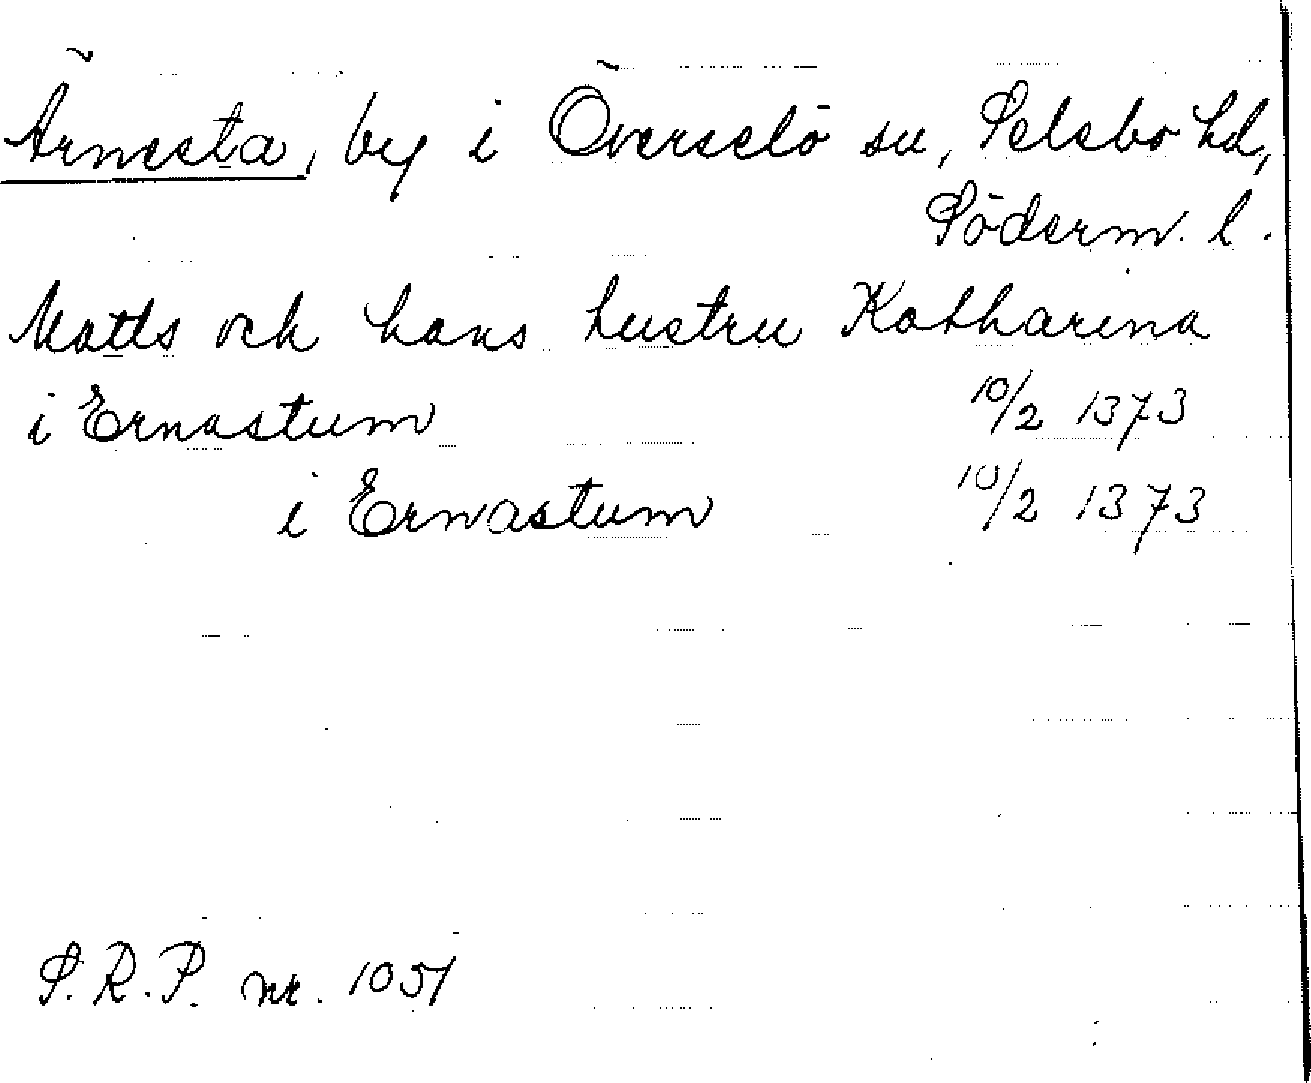 Ärnesta, by i Överselö sn, Selebo hd,
Söderm. l.
Matts och hans hustru Katharina
i Ernastum 10/2 1373
i Ernastum 10/2 1373
S.R.P. nr. 1051